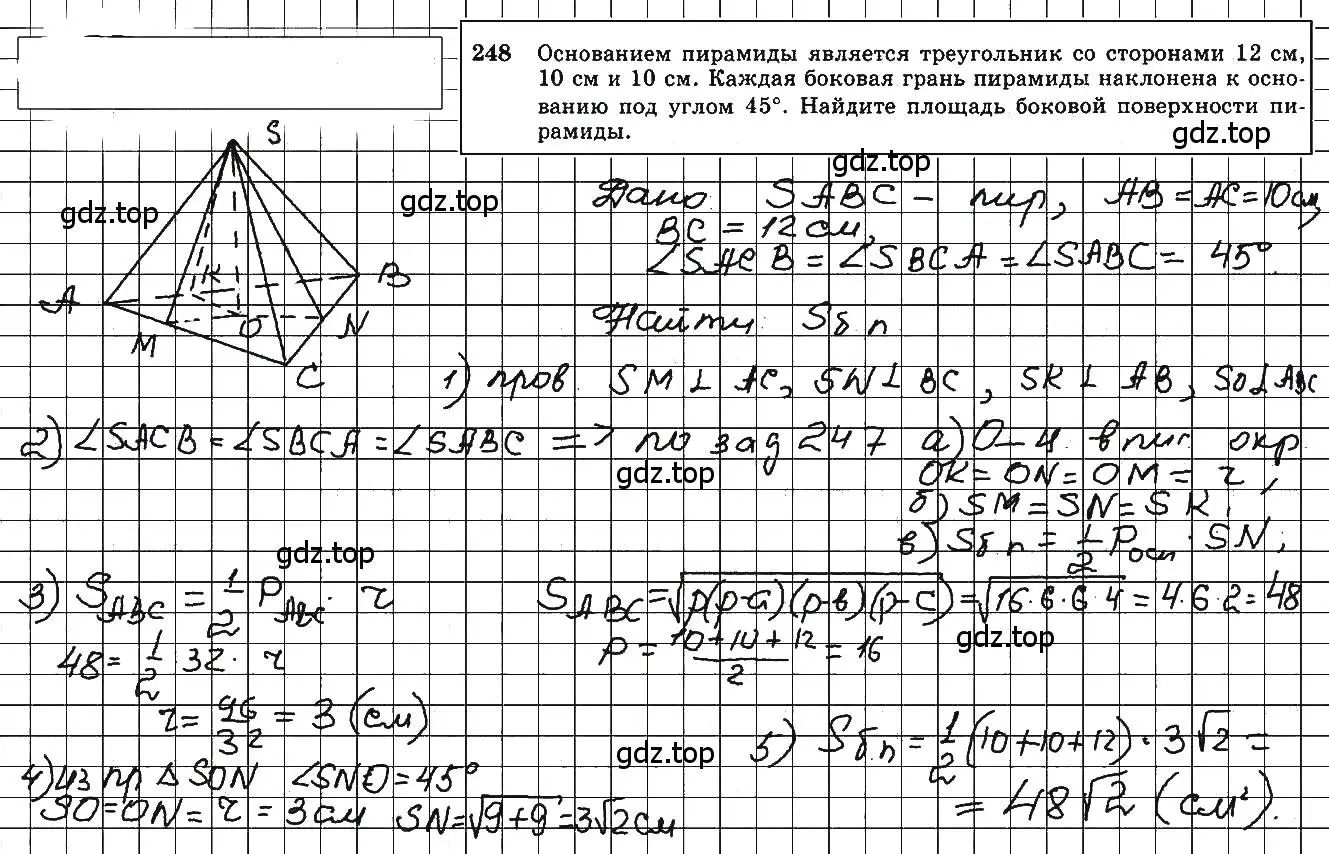 248 Основанием пирамиды является треугольник со сторонами 12 см,
10 см и 10 см. Каждая боковая грань пирамиды наклонена к осно-
ванию под углом 45°. Найдите площадь боковой поверхности пи-
рамиды.
gdz.top
gdz.top
S
gdz.top
gdz.top
Дано: SABC – пир, AB = AC = 10 см,
BC = 12 см,
∠SACB = ∠SBCA = ∠SABC = 45°.
K
B
A
O
N
M
C
Найти: Sбп
1) пров. SM ⊥ AC, SN ⊥ BC, SK ⊥ AB, SO ⊥ ABC
2) ∠SACB = ∠SBCA = ∠SABC => по зад 247 а) O – ц. впис. окр.
OK = ON = OM = r,
gdz.top
б) SM = SN = SK;
в) Sбп = 1/2 Pосн · SN;
gdz.top
3) S_ABC = 1/2 P_ABC · r
S_ABC = √(p(p-a)(p-в)(p-c)) = √(16·6·6·4) = 4·6·2 = 48
48 = 1/2 32 · r
p = (10+10+12)/2 = 16
gdz.top
r = 96/32 = 3 (см)
4) из пр △SON ∠SNO = 45°
SO = ON = r = 3 см SN = √(9+9) = 3√2 см
gdz.top
5) Sбп = 1/2 (10+10+12) · 3√2 =
= 48√2 (см²).